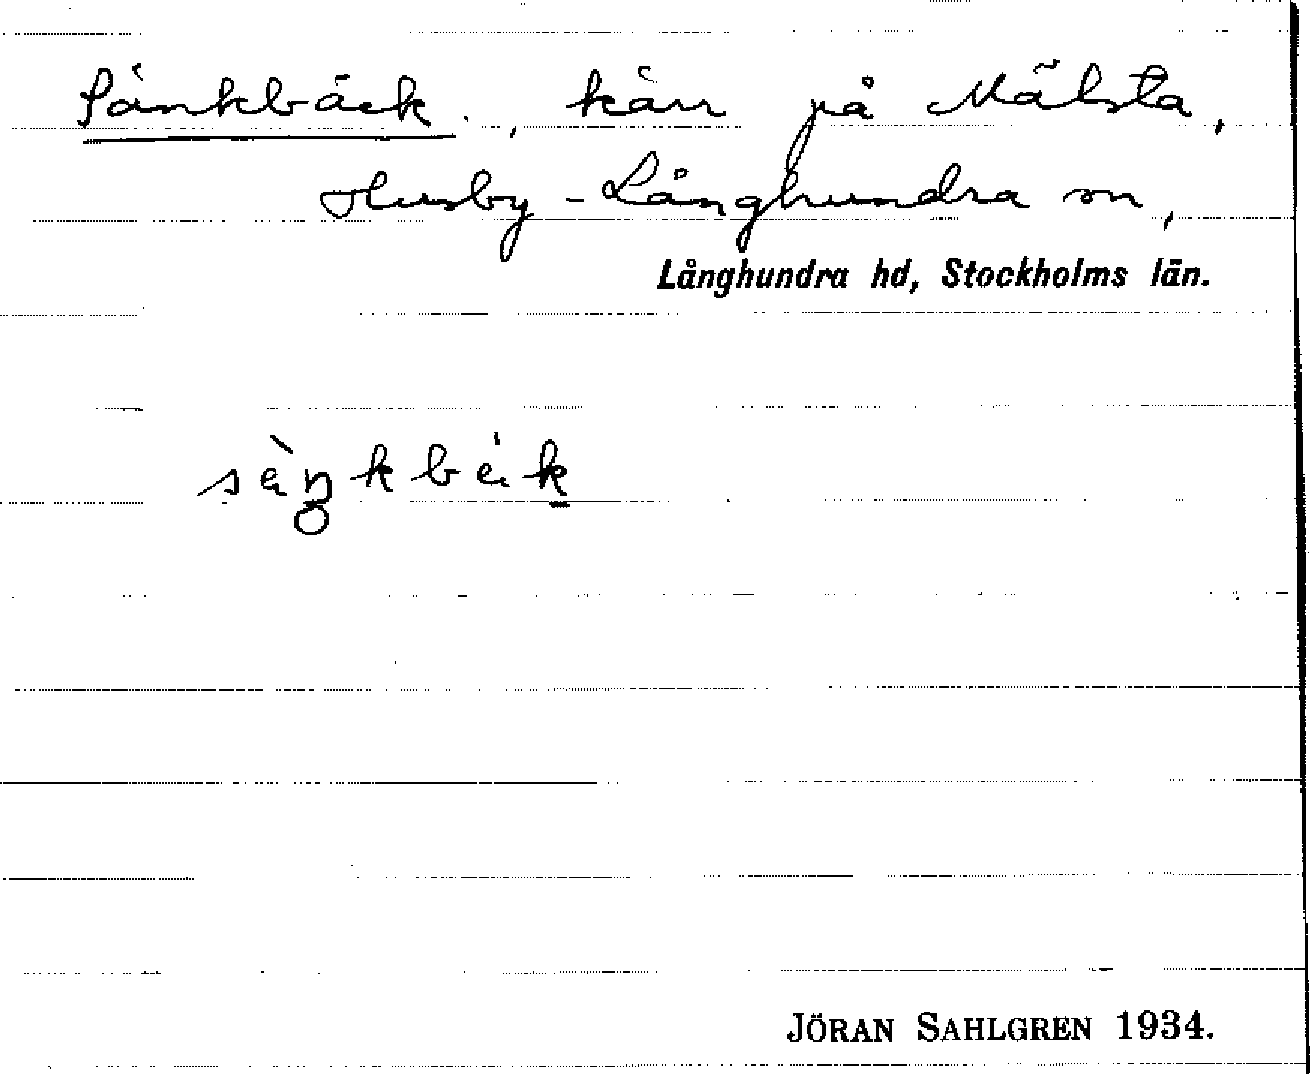 Sänkbäck, kärr på Mälsta,
Husby-Långhundra sn,
Långhundra hd, Stockholms län.
JÖRAN SAHLGREN 1934.